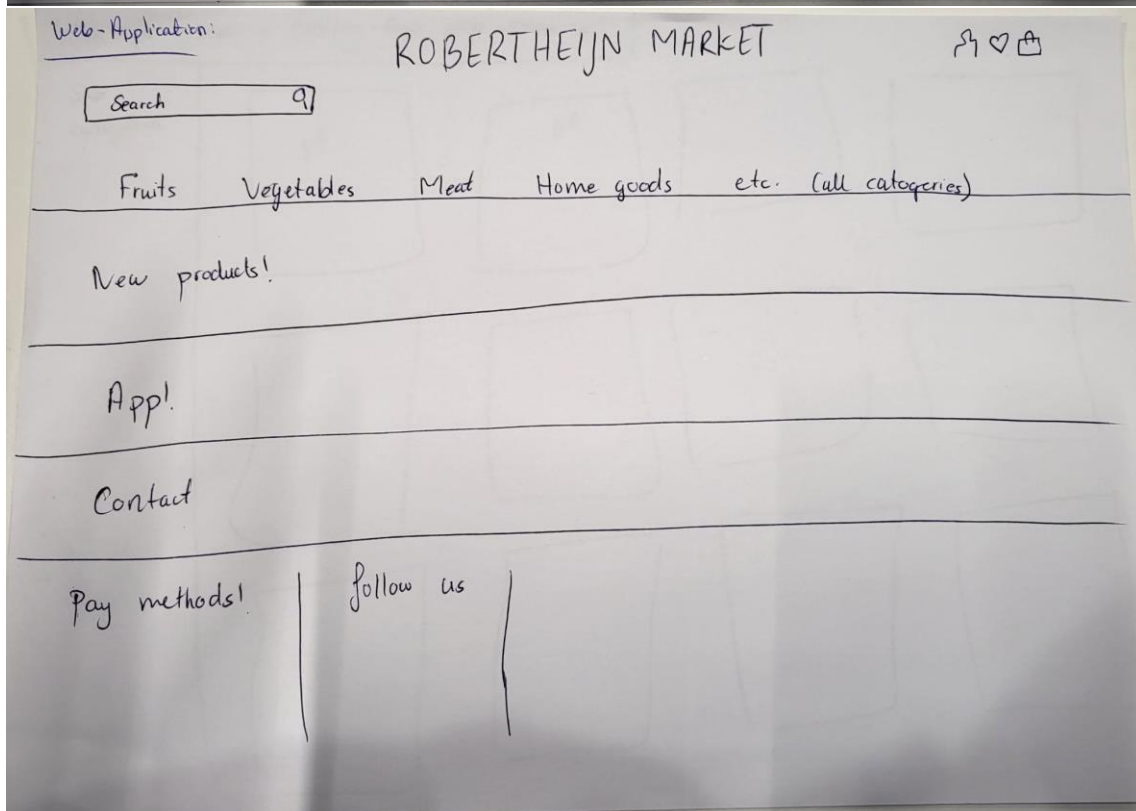 Web-Application:
ROBERTHEIJN MARKET
Search
Fruits Vegetables Meat Home goods etc. (all catogeries)
New products!
App!
Contact
Pay methods! follow us